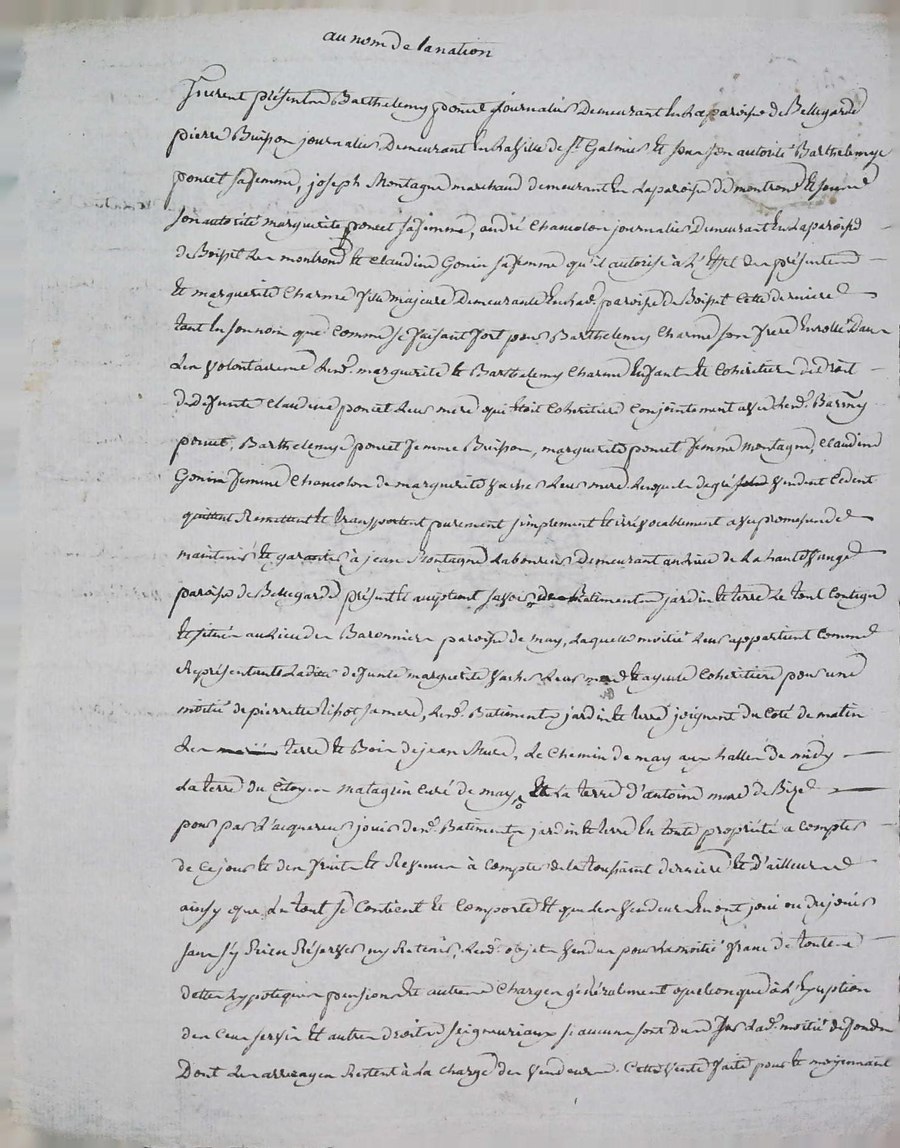 au nom de la nation
Furent présents Barthelemy poncet journalier Demeurant En La paroisse de Bellegarde
pierre Buisson journalier Demeurant En La Ville de St Galmier Et sous son autorité Barthelemye
poncet sa femme, joseph Montagne marchand demeurant En La paroisse de montrond Et sous
son autorité marguerite poncet sa femme, andré Chancolon journalier Demeurant En La paroisse
de Boisset Les montrond Et Claudine Gonin sa femme qu'il autorise à L'Effet des présentes
Et marguerite Charme fille majeure Demeurante En Lad. paroisse de Boisset Cette derniere
tant En son nom que Comme se faisant fort pour Barthelemy Charme son frere Enrollé Dans
Les Volontaires Lesd. marguerite Et Barthelemy Charme Enfants Et Cohéritiers de droit
de Défunte Claudine poncet Leur mere qui Etoit Cohéritiere Conjointement avec Lesd. Barmy
poncet, Barthelemye poncet femme Buisson, marguerite poncet femme Montagne, Claudine
Gonin femme Chancolon de marguerite Vacher Leur mere Lesquels de gré Vendent Cèdent
quittent Remettent Et transportent purement simplement Et irrévocablement avec promesse de
maintenir Et garantir à jean Montagne Laboureur Demeurant au Lieu de La haute
paroisse de Bellegarde présent Et acceptant savoir Batiments jardin Et terre Le tout Contigu
Et situés au Lieu des Baronnier paroisse de may, Laquelle moitié Leur appartient Comme
Représentants Ladite défunte marguerite Vacher Leur mere Et ayeule Cohéritiere pour une
moitié de pierrette sa mere, Lesd. Batiments jardin Et terre joignent du Coté de matin
Les terre Et Bois de jean Mure, Le Chemin de may aux halles de midy
La terre du Citoyen matagrin Curé de may, La terre d'antoine mure de Bize
pour par L'acquereur jouir desd. Batiments jardin Et terre En toute propriété a Compter
de Ce jour Et des fruits Et Revenus à Compter de la toussaint derniere Et d'ailleurs
ainsy que Le tout se Contient Et Comporte Et que Les Vendeurs En ont joui ou du jouir
sans s'y Rien Réserver ny Retenir, Lesd. objets Vendus pour La moitié franc de toutes
dettes hypoteques pensions Et autres Charges généralement quelconques à L'Exception
des Cens servis Et autres Droits seigneuriaux si aucuns sont Dus sur Lad. moitié de fonds
Dont Les arrerages Restent à La Charge des Vendeurs. Cette Vente faite pour Et moyennant